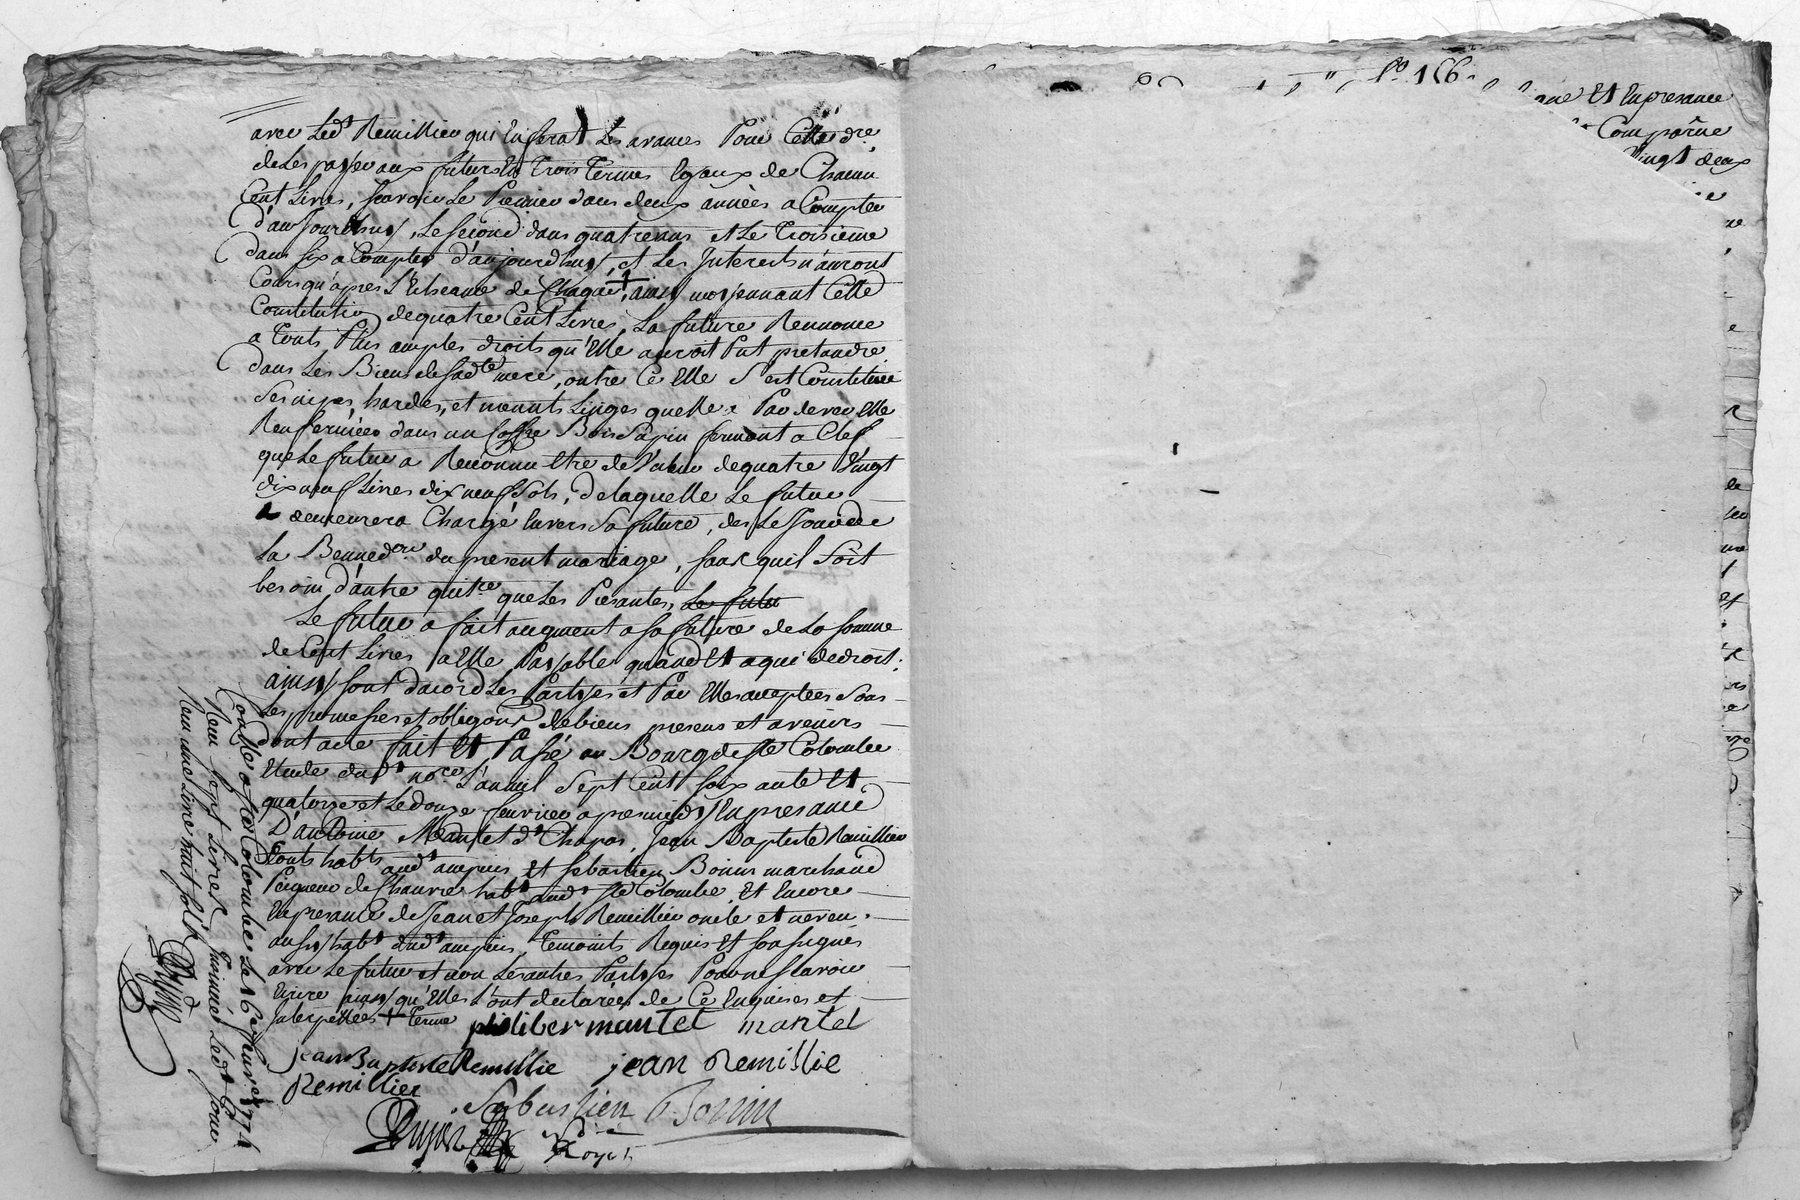 avec Led.t Remillieu qui En ferat Les avances Pour Cette d.re
de Les payer aux futurs En trois Termes Egaux de Chacun
Cent Livres, Scavoir Le Premier dans deux années a Compter
d'aujourdhuy, Le second dans quatre ans et Le Troisieme
dans six a Compter d'aujourdhuy, et Les Interets n'auront
Cours qu'apres L'Echeance de Chaque +, ainsy moyennant Cette
Constitution de quatre Cent Livres, La future Renonce
a Touts Plus amples droits qu'Elle auroit Put pretandre
dans Les Biens de sad.te mere, outre Ce Elle S'est Constituée
Ses nipes, hardes, et menuts Linges quelle a Par devers Elle
Renfermées dans un Coffre Bois Sapin fermant a Clef
que Le futur a Reconnu Etre de Valeur de quatre Vingt
dix neuf Livres dix neuf Sols, de laquelle Le futur
demeurera Chargé Envers Sa future, des Le jour de
La Benned.on du present mariage, sans quil Soit
besoin d'autre quit.ce que Les Presantes, Le futur
Le futur a fait augment a sa future de La somme
de Cent Livres a Elle Payable quand Et a qui de droit:
ainsy sont dacord Les Partyes et Par Elles acceptées Sous
Les promesses et obligaons de biens presens et avenirs
dont acte fait Et Passé au Bourg de Ste Colombe
Etude dud.t no.re L'an mil Sept Cent Soix ante Et
quatorze et Le douze fevrier apres midy En presance
D'antoine Mantet d.t Chapas, Jean Baptiste Remillieu
touts habts aud.t ampuis et sebastien Bonin marchand
Peigneur de Chanvre hab.t aud.t Ste Colombe, Et Encore
En presance de Jean et Joseph Remillieu oncle et neveu
aussy hab.ts aud.t ampuis Temoints Requis Et soussignés
avec Le futur et non Les autres Partyes Pour ne scavoir
Ecrire ainsy qu'Elles L'ont declarées de Ce Enquises et
Interpellées + Terme philiber mantet mantet
jean Baptiste Remillie jean Remillie
Remillier
Sebastien Bonin
Controllé a ste Colombe Le 16.e fevrier 1774
Reçu Sept Livres
Reçu une Livre huit sols
f.o 156
Et En presance
Comparue
Vingt deux